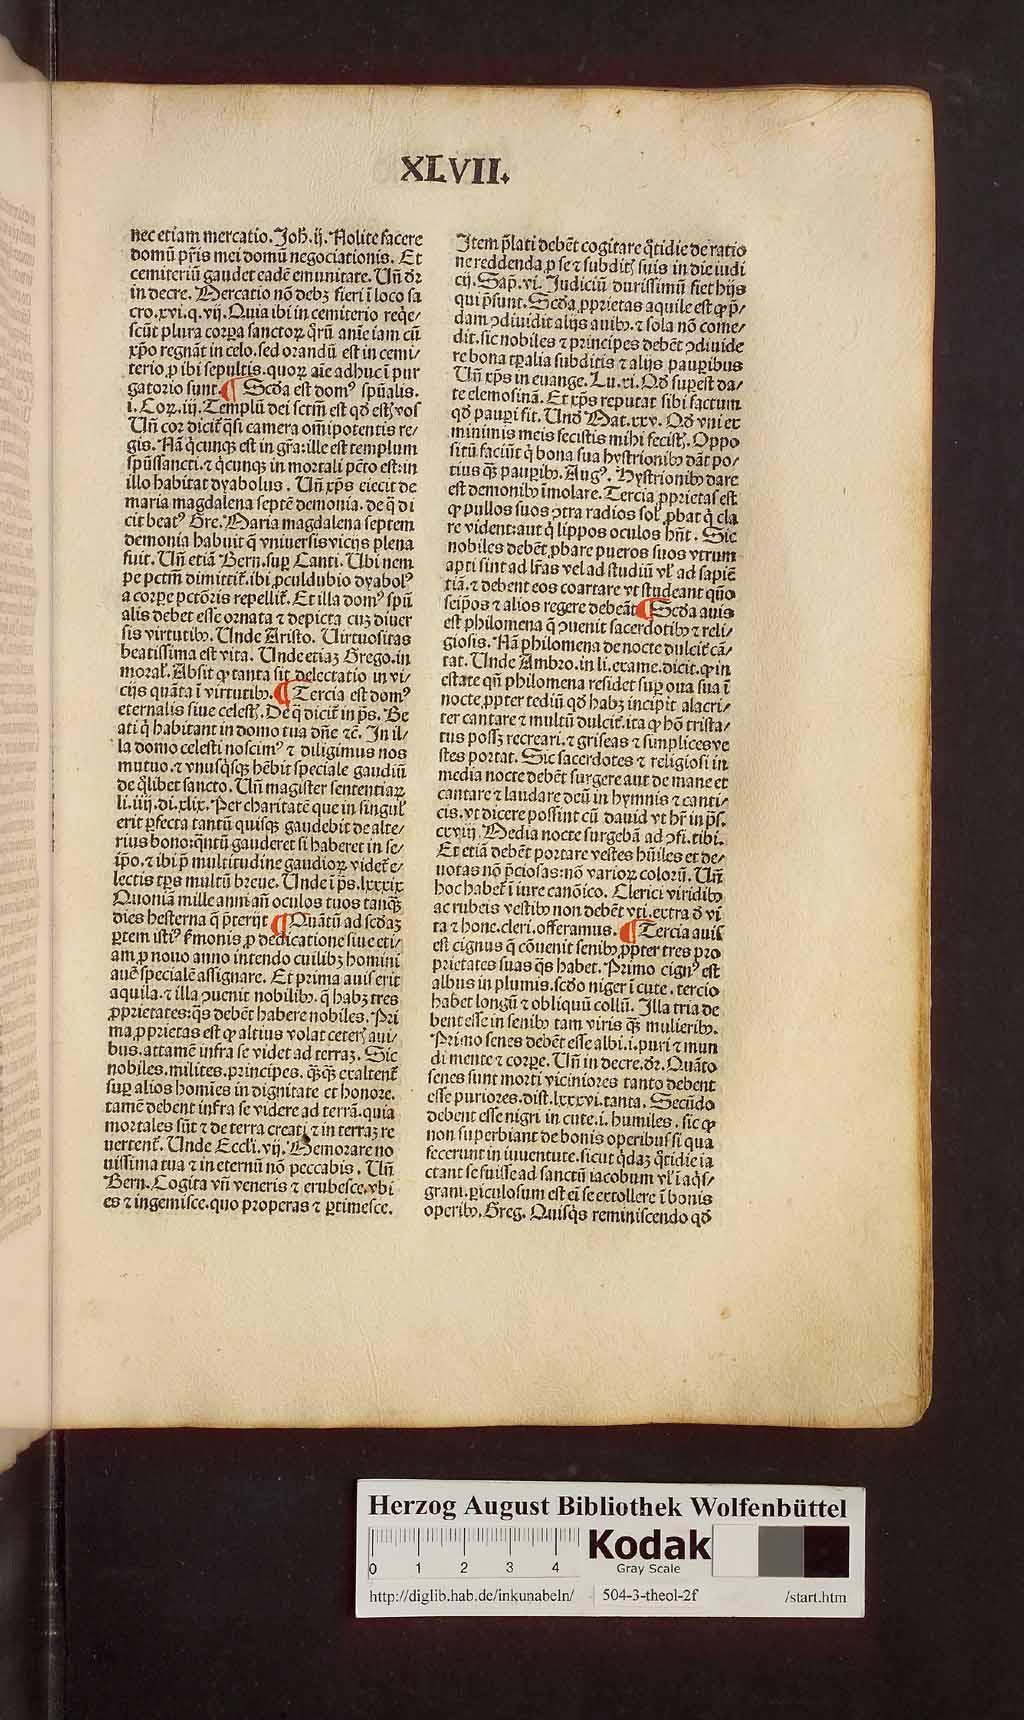 XLVII.
nec etiam mercatio. Joh̄. ij. Nolite facere
domū pr̄is mei domū negociationis. Et
cemiteriū gaudet eadē emunitate. Vn̄ dr̄
in decre. Mercatio nō debꝫ fieri ī loco sa
cro. xvi. q. vij. Quia ibi in cemiterio reqe̱/
scūt plura corꝑa sanctoꝝ qͦrū anīe iam cū
xp̄o regnāt in celo. sed orandū est in cemi/
terio ꝓ ibi sepultis. quoꝝ aīe adhuc ī pur
gatorio sunt. ¶ Scd̄a est domꝰ spūalis.
i. Coꝝ. iij. Templū dei sctm̄ est qd̄ estꝭ vos
Vn̄ cor dicit̄ qͣsi camera om̄ipotentis re/
gis. Nā qͥcunqꝫ est in gr̄a: ille est templum
spūssancti. ⁊ qͥcunqꝫ in mortali pct̄o est: in
illo habitat dyabolus. Vn̄ xp̄s eiecit de
maria magdalena septē demonia. de q̄ di
cit beatꝰ Gre. Maria magdalena septem
demonia habuit q̄ vniuersis vicijs plena
fuit. Vn̄ etiā Bern. suꝑ Canti. Ubi nem
pe pctm̄ dimittit̄. ibi ꝓculdubio dyabolꝰ
a corꝑe pctōris repellit̄. Et illa domꝰ spū
alis debet esse ornata ⁊ depicta cuꝫ diuer
sis virtutibꝫ. Unde Aristo. Uirtuositas
beatissima est vita. Unde etiaꝫ Grego. in
moral̄. Absit ꝙ tanta sit delectatio in vi/
cijs quāta ī virtutibꝫ. ¶ Tercia est domꝰ
eternalis siue celestꝭ. De q̄ dicit̄ in pͣs. Be
ati qͥ habitant in domo tua dn̄e ⁊c̄. In il/
la domo celesti noscimꝰ ⁊ diligimus nos
mutuo. ⁊ vnusqͥsqꝫ hēbit speciale gaudiū
de qͦlibet sancto. Vn̄ magister sententiaꝝ
li. iiij. di. xlix. Per charitatē que in singul̄
erit ꝑfecta tantū quisqꝫ gaudebit de alte/
rius bono: qͣntū gauderet si haberet in se/
ip̄o. ⁊ ibi p̄ multitudine gaudioꝝ videt̄ e/
lectis tꝑs multū breue. Unde ī pͣs. lxxxix
Quoniā mille anni an̄ oculos tuos tanqꝫ̄
dies hesterna q̄ p̄terijt ¶ Quātū ad scd̄aꝫ
ꝑtem istiꝰ s̄monis ꝓ dedicatione siue eti/
am ꝓ nouo anno intendo cuilibꝫ homini
auē specialē assignare. Et prima auis erit
aquila. ⁊ illa ꝯuenit nobilibꝫ. q̄ habꝫ tres
ꝓprietates: qͣs debēt habere nobiles. Pri
ma ꝓprietas est ꝙ altius volat ceterꝭ aui/
bus. attamē infra se videt ad terraꝫ. Sic
nobiles. milites. principes. qͣꝫqͣꝫ exaltent̄
suꝑ alios homīes in dignitate et honore.
tamē debent infra se videre ad terrā. quia
mortales sūt ⁊ de terra creati ⁊ in terraꝫ re
uertent̄. Unde Eccli. vij. Memorare no
uissima tua ⁊ in eternū nō peccabis. Vn̄
Bern. Cogita vn̄ veneris ⁊ erubesce. vbi
es ⁊ ingemisce. quo properas ⁊ ꝑtimesce.
Item p̄lati debēt cogitare qͦtidie de ratio
ne reddenda ꝓ se ⁊ subditꝭ suis in die iudi
cij. Sap̄. vi. Judiciū durissimū fiet hijs
qui p̄sunt. Scd̄a ꝓprietas aquile est ꝙ p̄/
dam ꝯdiuidit alijs auibꝫ. ⁊ sola nō come/
dit. sic nobiles ⁊ principes debēt ꝯdiuide
re bona tꝑalia subditis ⁊ alijs pauꝑibus
Vn̄ xp̄s in euange. Lu. xi. Qd̄ suꝑest da/
te elemosinā. Et xp̄s reputat sibi factum
qd̄ pauꝑi fit. Und̄ Mat. xxv. Qd̄ vni ex
minimis meis fecistis mihi fecistꝭ. Oppo
sitū faciūt qͥ bona sua hystrionibꝫ dāt po/
tius qͣꝫ pauꝑibꝫ. Augꝰ. Hystrionibꝫ dare
est demonibꝫ īmolare. Tercia ꝓprietas est
ꝙ pullos suos ꝯtra radios sol̄ ꝓbat qͥ cla
re vident: aut qͥ lippos oculos hn̄t. Sic
nobiles debēt ꝓbare pueros suos vtrum
apti sint ad lr̄as vel ad studiū vl̄ ad sapiē
tiā. ⁊ debent eos coartare vt studeant qūo
seip̄os ⁊ alios regere debeāt ¶ Scd̄a auis
est philomena q̄ ꝯuenit sacerdotibꝫ ⁊ reli/
giosis. Nā philomena de nocte dulcit̄ cā/
tat. Unde Ambro. in li. exame. dicit. ꝙ in
estate qn̄ philomena residet suꝑ oua sua ī
nocte ꝓpter tediū qd̄ habꝫ incipit alacri/
ter cantare ⁊ multū dulcit̄. ita ꝙ hō trista/
tus possꝫ recreari. ⁊ griseas ⁊ simplices ve
stes portat. Sic sacerdotes ⁊ religiosi in
media nocte debēt surgere aut de mane et
cantare ⁊ laudare deū in hymnis ⁊ canti/
cis. vt dicere possint cū dauid vt hr̄ in pͣs.
cxviij. Media nocte surgebā ad ꝯfi. tibi.
Et etiā debēt portare vestes hūiles et de/
uotas nō p̄ciosas: nō varioꝝ coloꝝ. Vn̄
hoc habet̄ ī iure canōico. Clerici viridibꝫ
ac rubeis vestibꝫ non debēt vti. extra d̄ vi
ta ⁊ hone. cleri. offeramus. ¶ Tercia auis
est cignus q̄ cōuenit senibꝫ ꝓpter tres pro
prietates suas qͣs habet. Primo cignꝰ est
albus in plumis. scd̄o niger ī cute. tercio
habet longū ⁊ obliquū collū. Illa tria de
bent esse in senibꝫ tam viris qͣꝫ mulieribꝫ.
Primo senes debēt esse albi. i. puri ⁊ mun
di mente ⁊ corꝑe. Vn̄ in decre. dr̄. Quāto
senes sunt morti viciniores tanto debent
esse puriores. dist. lxxxvi. tanta. Secūdo
debent esse nigri in cute. i. humiles. sic ꝙ
non superbiant de bonis operibus si qua
fecerunt in iuuentute. sicut qͥdaꝫ qͦtidie ia
ctant se fuisse ad sanctū iacobum vl̄ ī aqͥs/
grani. ꝑiculosum est eī se extollere ī bonis
operibꝫ. Greg. Quisqͥs reminiscendo qd̄
Herzog August Bibliothek Wolfenbüttel
0 1 2 3 4
Kodak
Gray Scale
http://diglib.hab.de/inkunabeln/ 504-3-theol-2f /start.htm